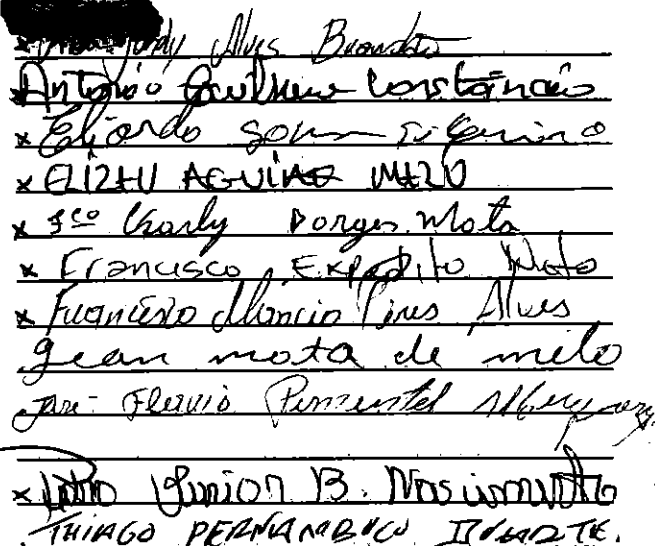 Alves Brandão
× Antonio Guilherme Constâncio
× Eliardo Sousa
× ELIZEU AGUIAR MELO
× Fco Charly Borges Mota
× Francisco Expedito Neto
× Francisco Marcio Pires Alves
Jean mota de melo
José Flavio Pimentel
× Junior B. Nascimento
THIAGO PERNAMBUCO DUARTE.